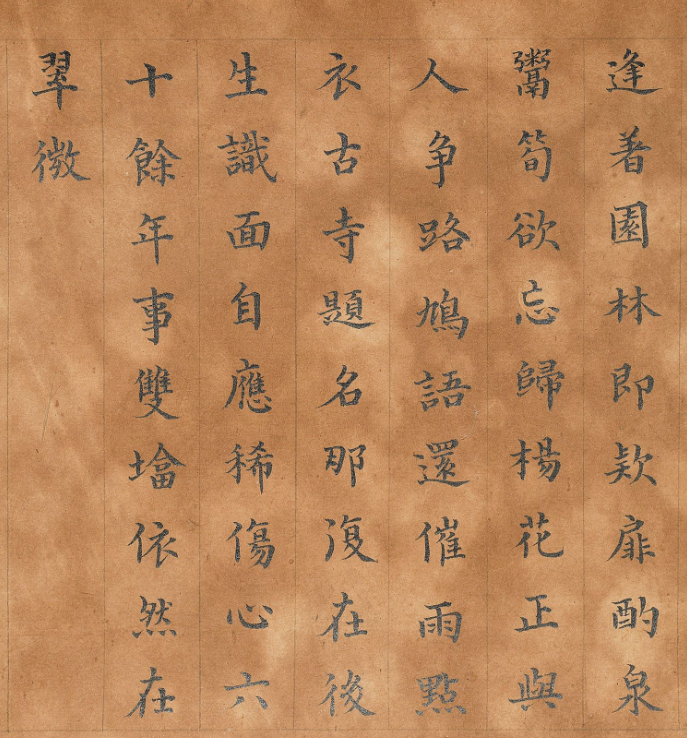 逢著園林即款扉酌泉
鬻筍欲忘歸楊花正與
人争路鳩語還催雨點
衣古寺題名那復在後
生識面自應稀傷心六
十餘年事雙墖依然在
翠微